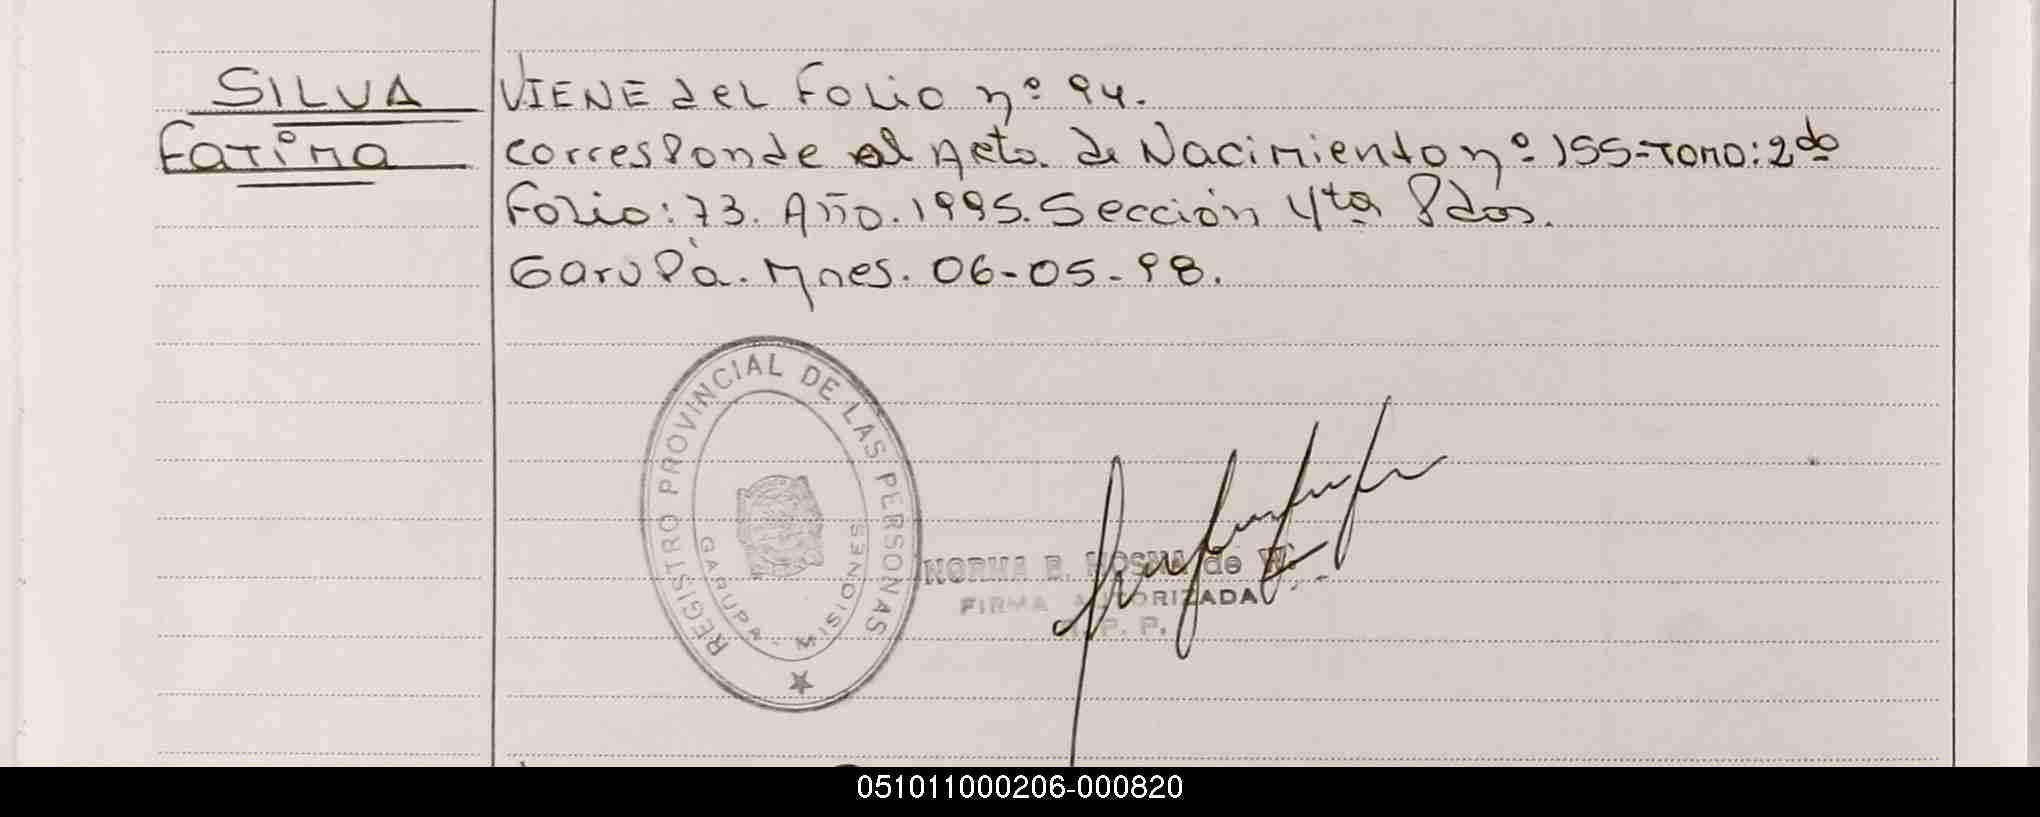 SILVA
Fatima
VIENE del Folio nº 94.
corresponde al Acta de Nacimiento nº 155-Tomo: 2do
Folio: 73. Año. 1995. Sección 4ta Pdas.
Garupá. Mnes. 06-05-98.
REGISTRO PROVINCIAL DE LAS PERSONAS
GARUPA - MISIONES
NORMA B. de
FIRMA AUTORIZADA
051011000206-000820